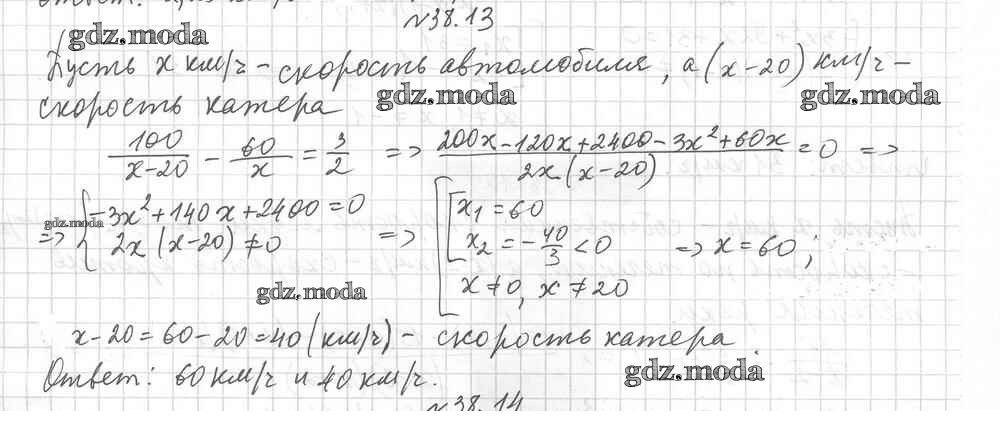 №38.13
gdz.moda
Пусть x км/ч – скорость автомобиля, а (x-20) км/ч –
скорость катера gdz.moda gdz.moda
100/(x-20) - 60/x = 3/2 => (200x-120x+2400-3x²+60x)/(2x(x-20)) = 0 =>
gdz.moda
=> { -3x²+140x+2400=0 => [ x₁=60
2x(x-20)≠0 x₂=-40/3<0 => x=60;
x≠0, x≠20
gdz.moda
x-20=60-20=40 (км/ч) – скорость катера.
Ответ: 60 км/ч и 40 км/ч.
gdz.moda
№38.14